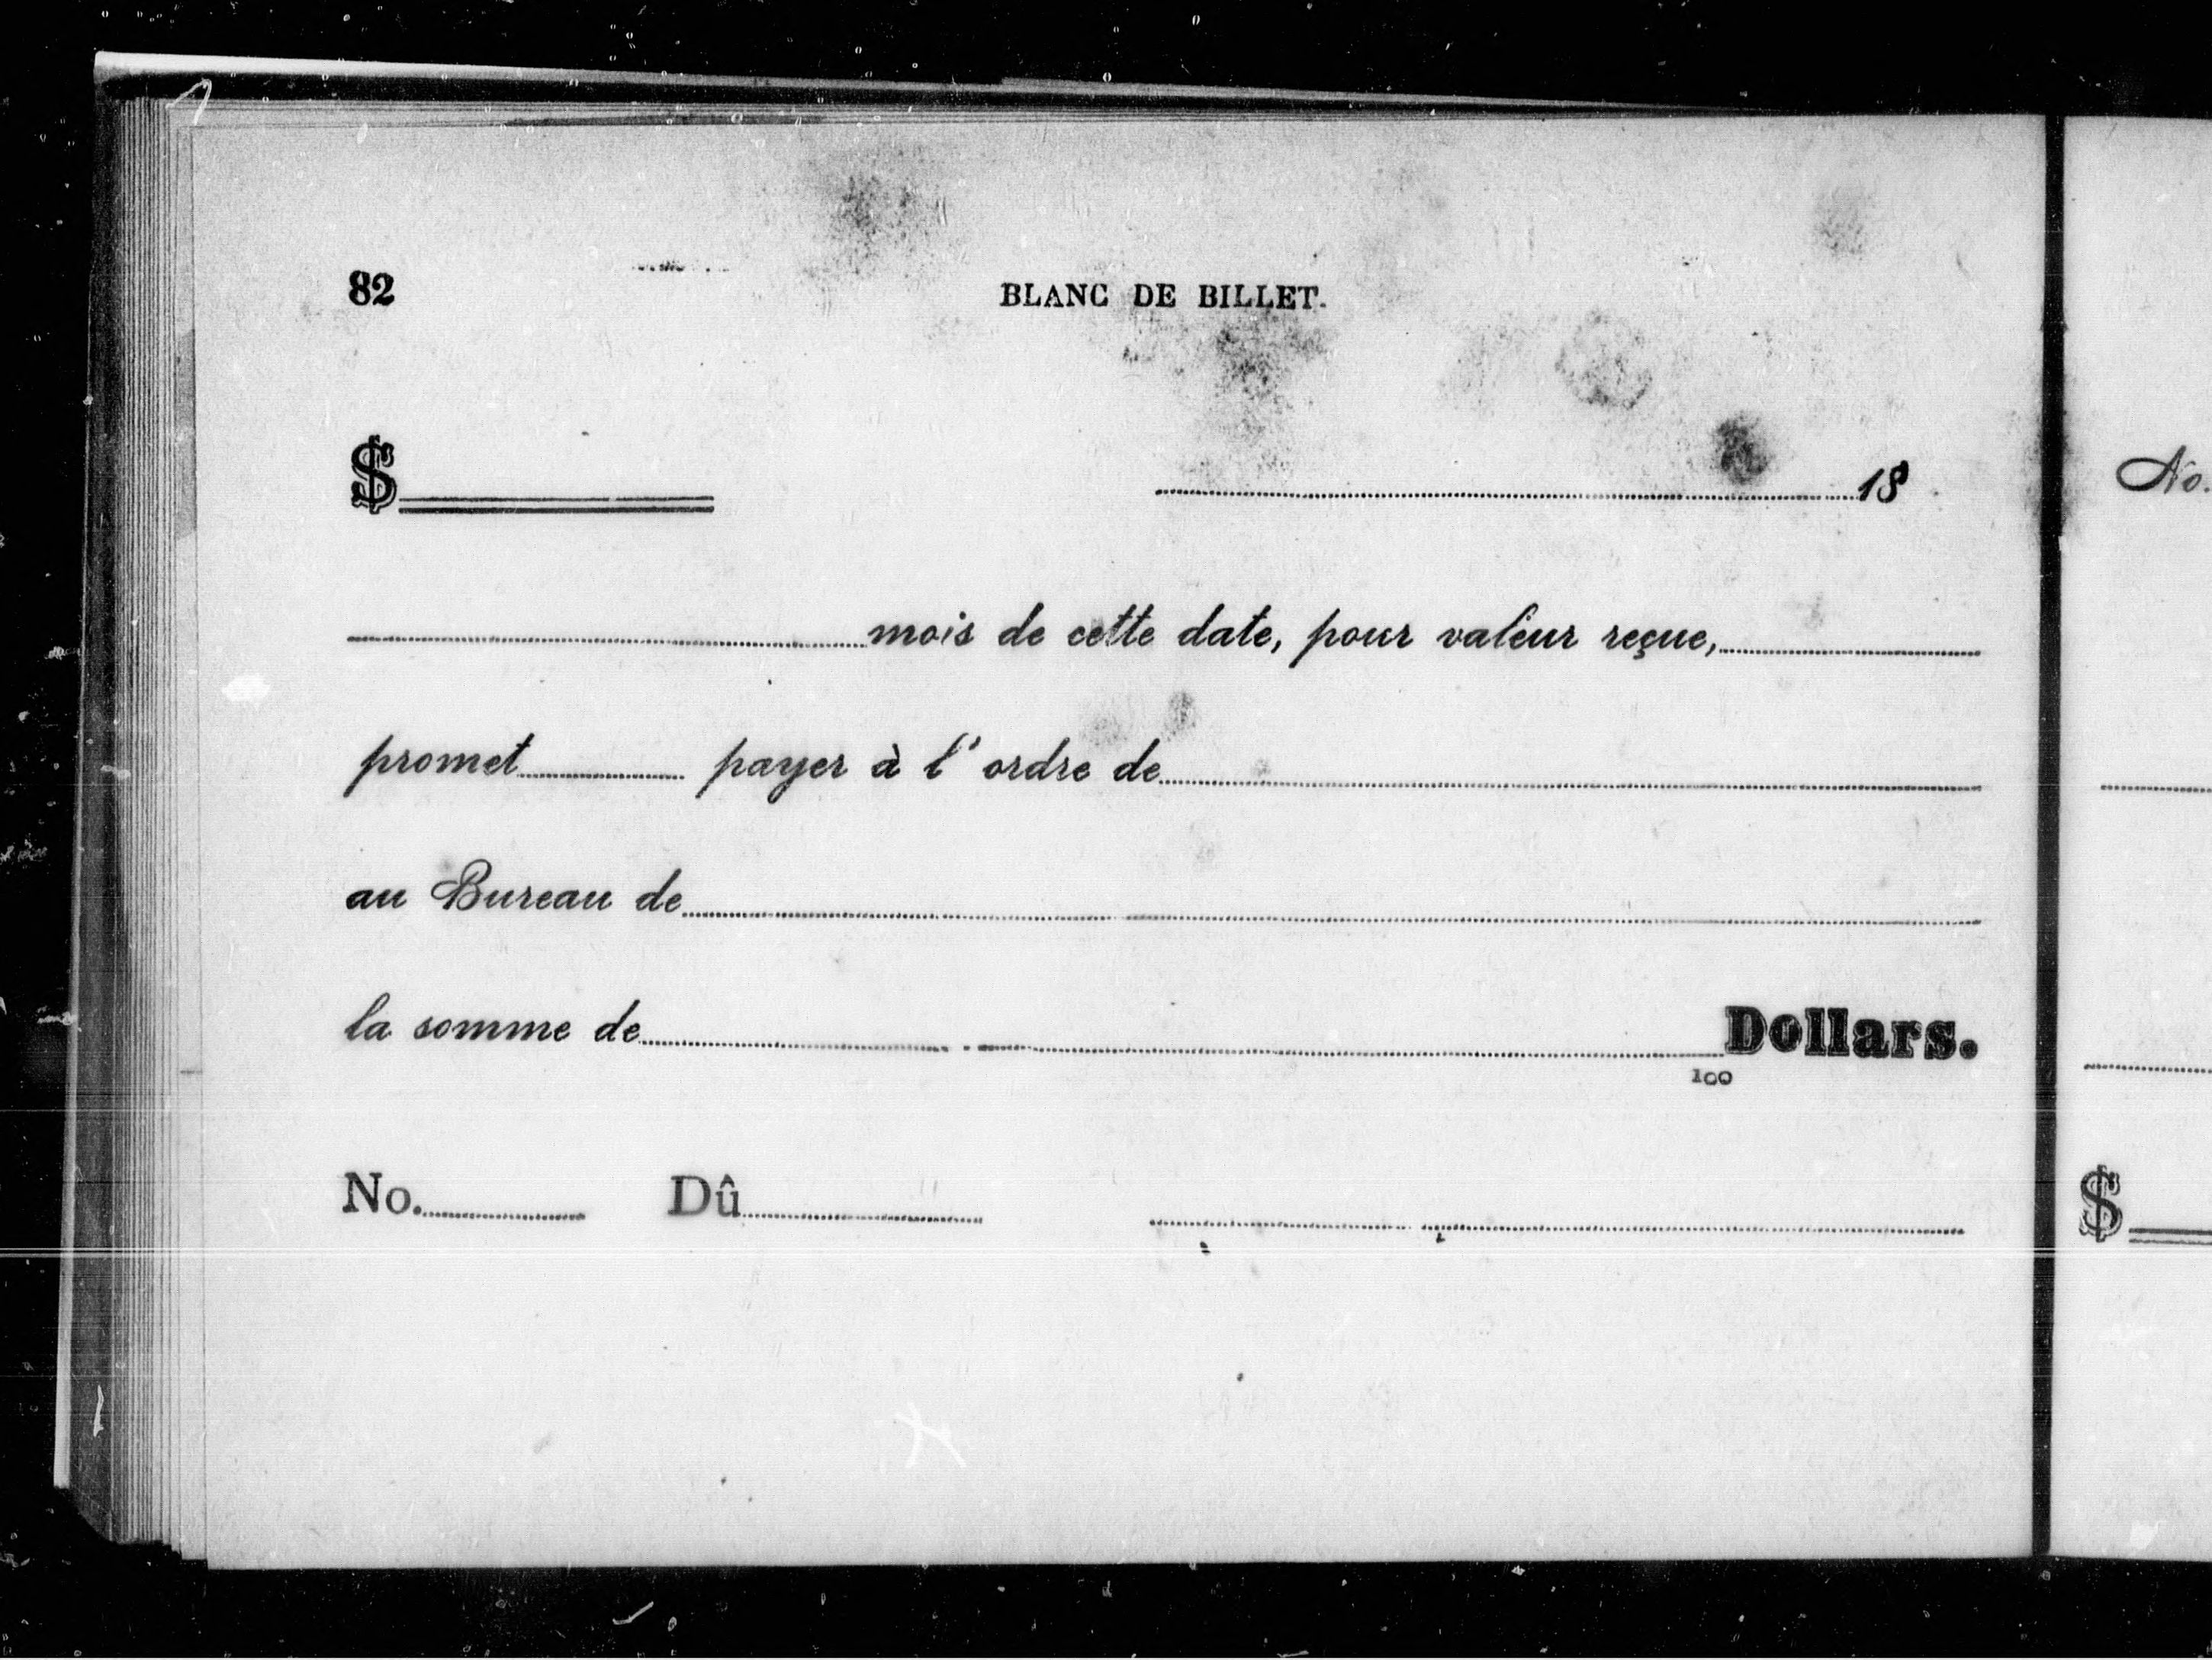 82 BLANC DE BILLET.
$ 18
mois de cette date, pour valeur reçue,
promet payer à l'ordre de
au Bureau de
la somme de Dollars.
100
No. Dû
No.
$